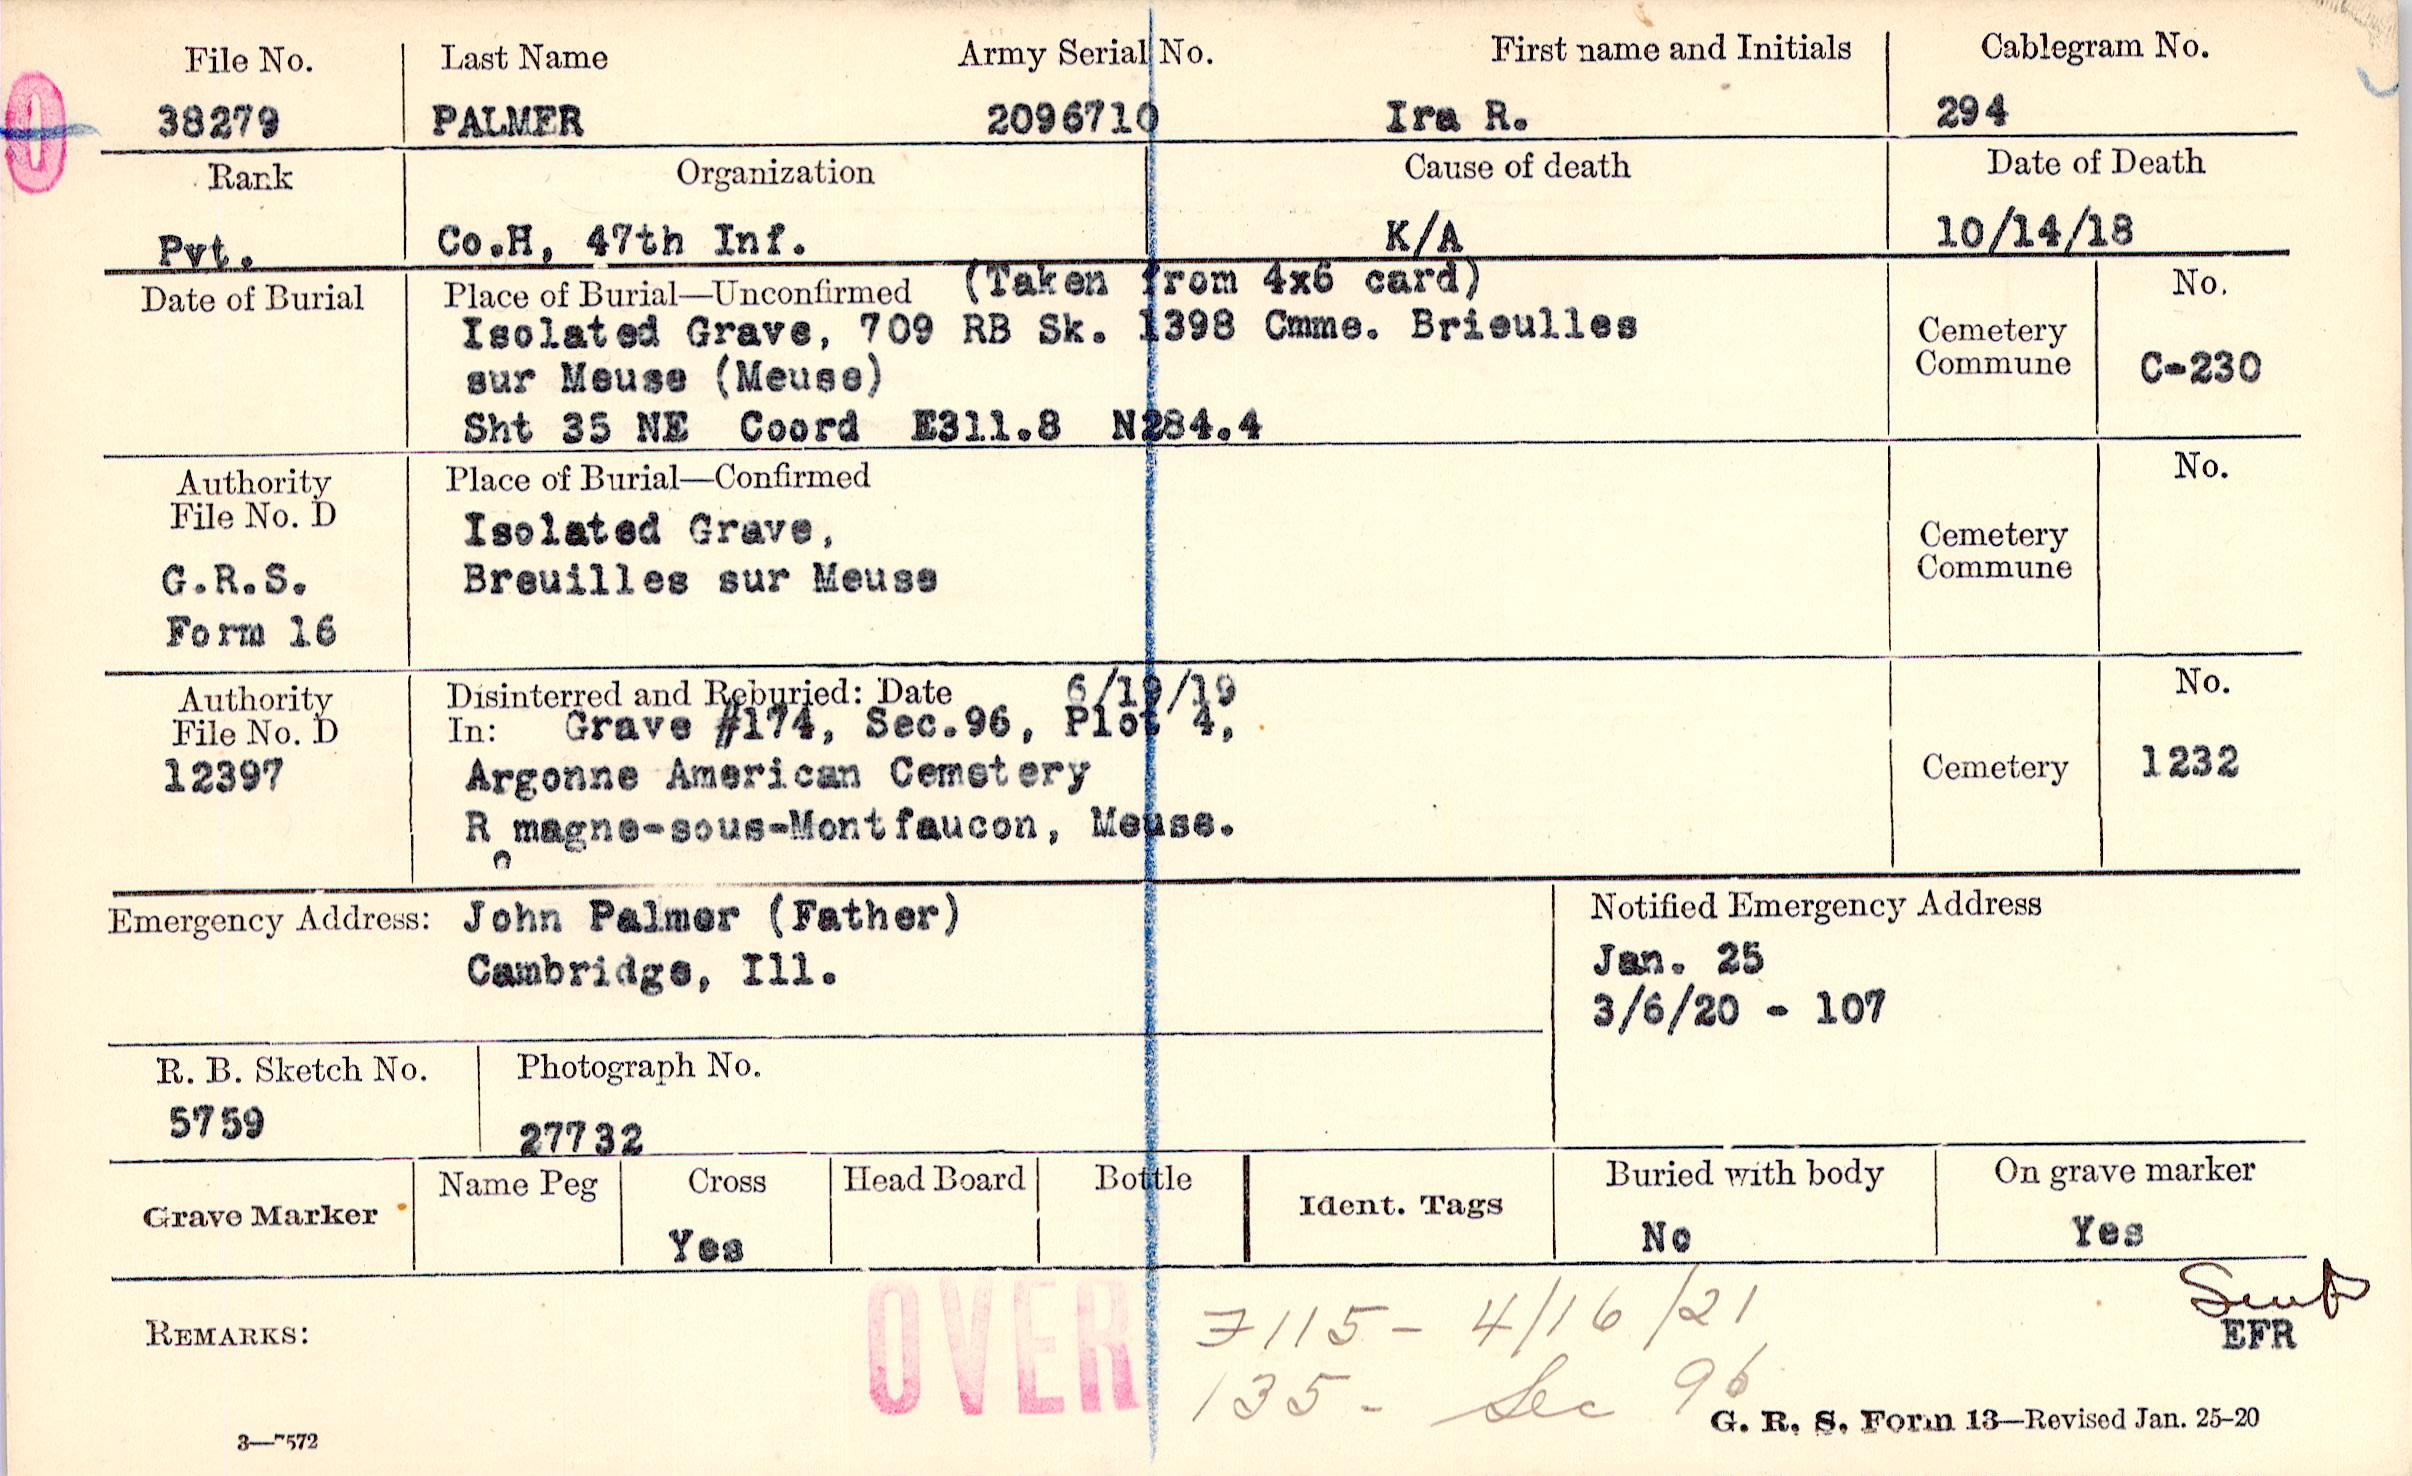 File No. Last Name Army Serial No. First name and Initials Cablegram No.
38279 PALMER 2096710 Ira R. 294
Rank Organization Cause of death Date of Death
Pvt. Co.H, 47th Inf. K/A 10/14/18
Date of Burial Place of Burial—Unconfirmed (Taken from 4x6 card) No.
Isolated Grave, 709 RB Sk. 1398 Cmme. Brieulles
sur Meuse (Meuse)
Sht 35 NE Coord E311.8 N284.4
Cemetery
Commune C-230
Authority
File No. D
G.R.S.
Form 16
Place of Burial—Confirmed No.
Isolated Grave,
Breuilles sur Meuse
Cemetery
Commune
Authority
File No. D
12397
Disinterred and Reburied: Date 6/19/19 No.
In: Grave #174, Sec.96, Plot 4,
Argonne American Cemetery
R magne-sous-Montfaucon, Meuse.
o
Cemetery 1232
Emergency Address: John Palmer (Father)
Cambridge, Ill.
Notified Emergency Address
Jan. 25
3/6/20 - 107
R. B. Sketch No. Photograph No.
5759 27732
Grave Marker Name Peg Cross Head Board Bottle Ident. Tags Buried with body On grave marker
Yes No Yes
REMARKS:
OVER
7115 - 4/16/21
135 - Sec 96
EFR
3—7572
G. R. S. Form 13—Revised Jan. 25-20